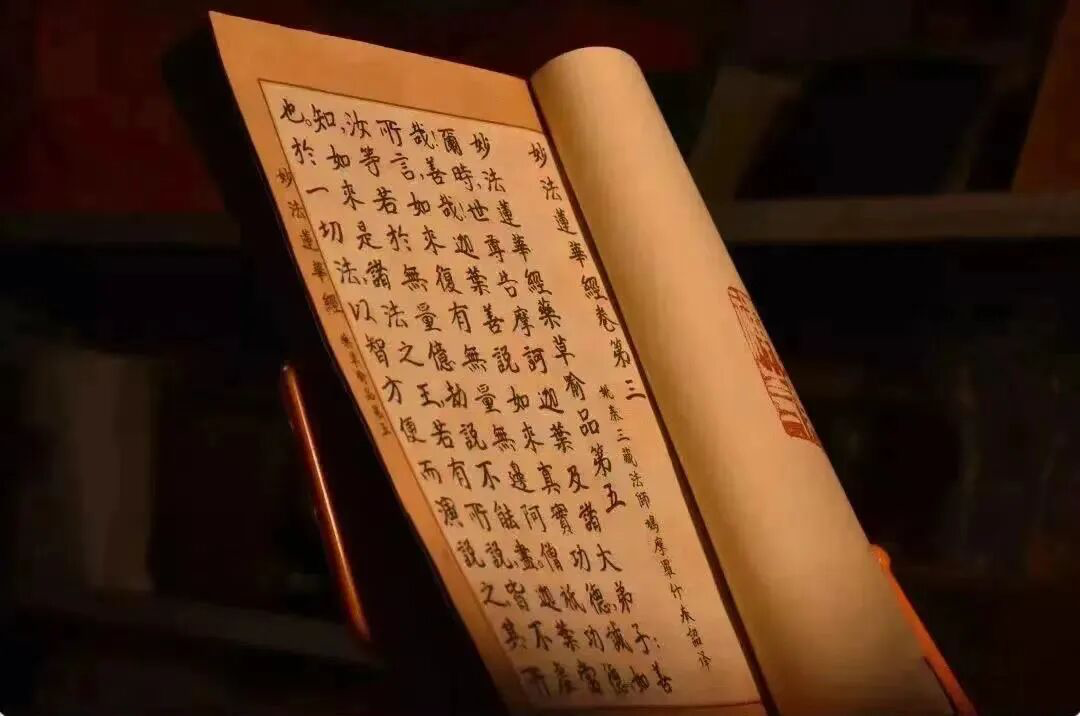 妙法蓮華經卷第三
姚秦三藏法師鳩摩羅什奉詔译
妙法蓮華經藥草喻品第五
爾時,世尊告摩訶迦葉及諸大弟子:善
哉!善哉!迦葉善說如來真實功德,誠如
所言,如來復有無量無邊阿僧祇功德
汝等若於無量億劫說不能盡。迦葉當
知,如來是諸法之王,若有所說,皆不虛
也。於一切法,以智方便而演說之,其所
妙法蓮華經 藥草喻品第五